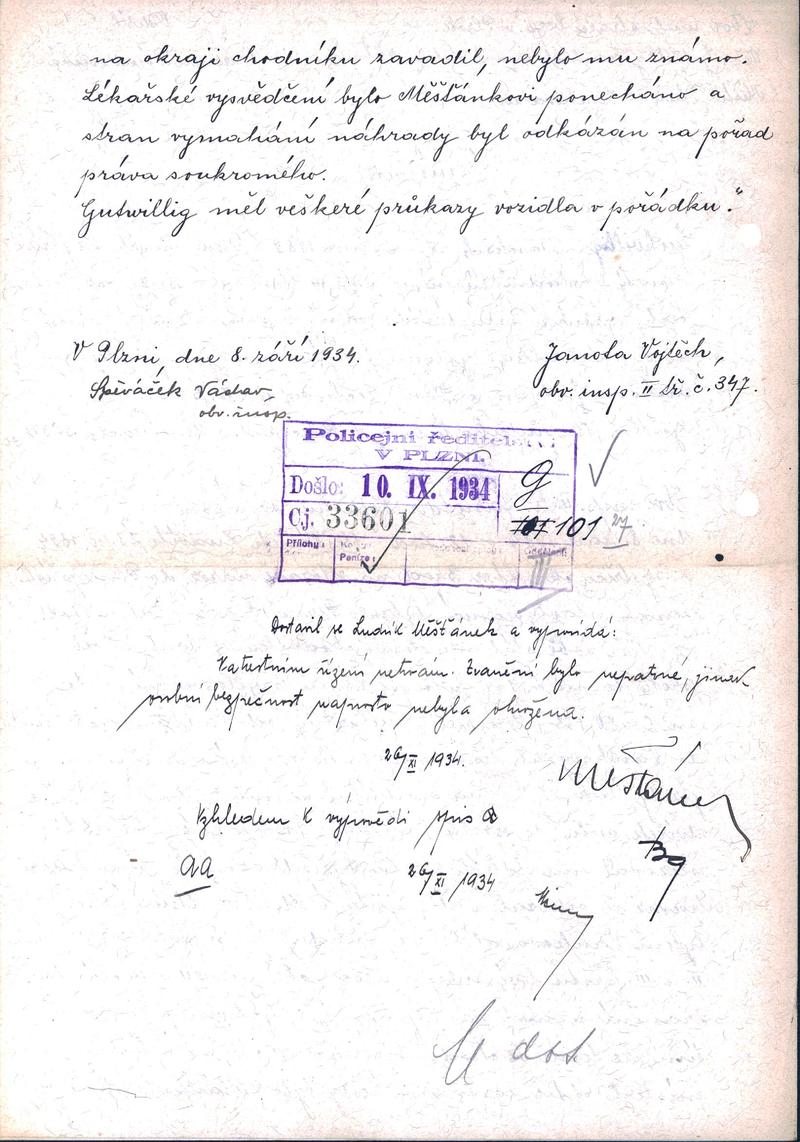 na okraji chodníku zavadil, nebylo mu známo.
Lékařské vysvědčení bylo Měšťánkovi ponecháno a
stran vymáhání náhrady byl odkázán na pořad
práva soukromého.
Gutwillig měl veškeré průkazy vozidla v pořádku."
V Plzni, dne 8. září 1934.
Janota Vojtěch,
Spěváček Václav,
obv. insp. II tř. č. 347.
obv. insp.
Policejní ředitel
V PLZNI.
Došlo: 10. IX. 1934
9
Čj. 33601
101
27
Přílohy:
Peníze:
III
Dostavil se Ludvík Měšťánek a vypovídá:
trestním řízení netrvám. Zranění bylo nepatrné, jinak
osobní bezpečnost naprosto nebyla ohrožena.
26/XI 1934.
Měšťánek
Vzhledem k výpovědi spis
aa
26/XI 1934
dot